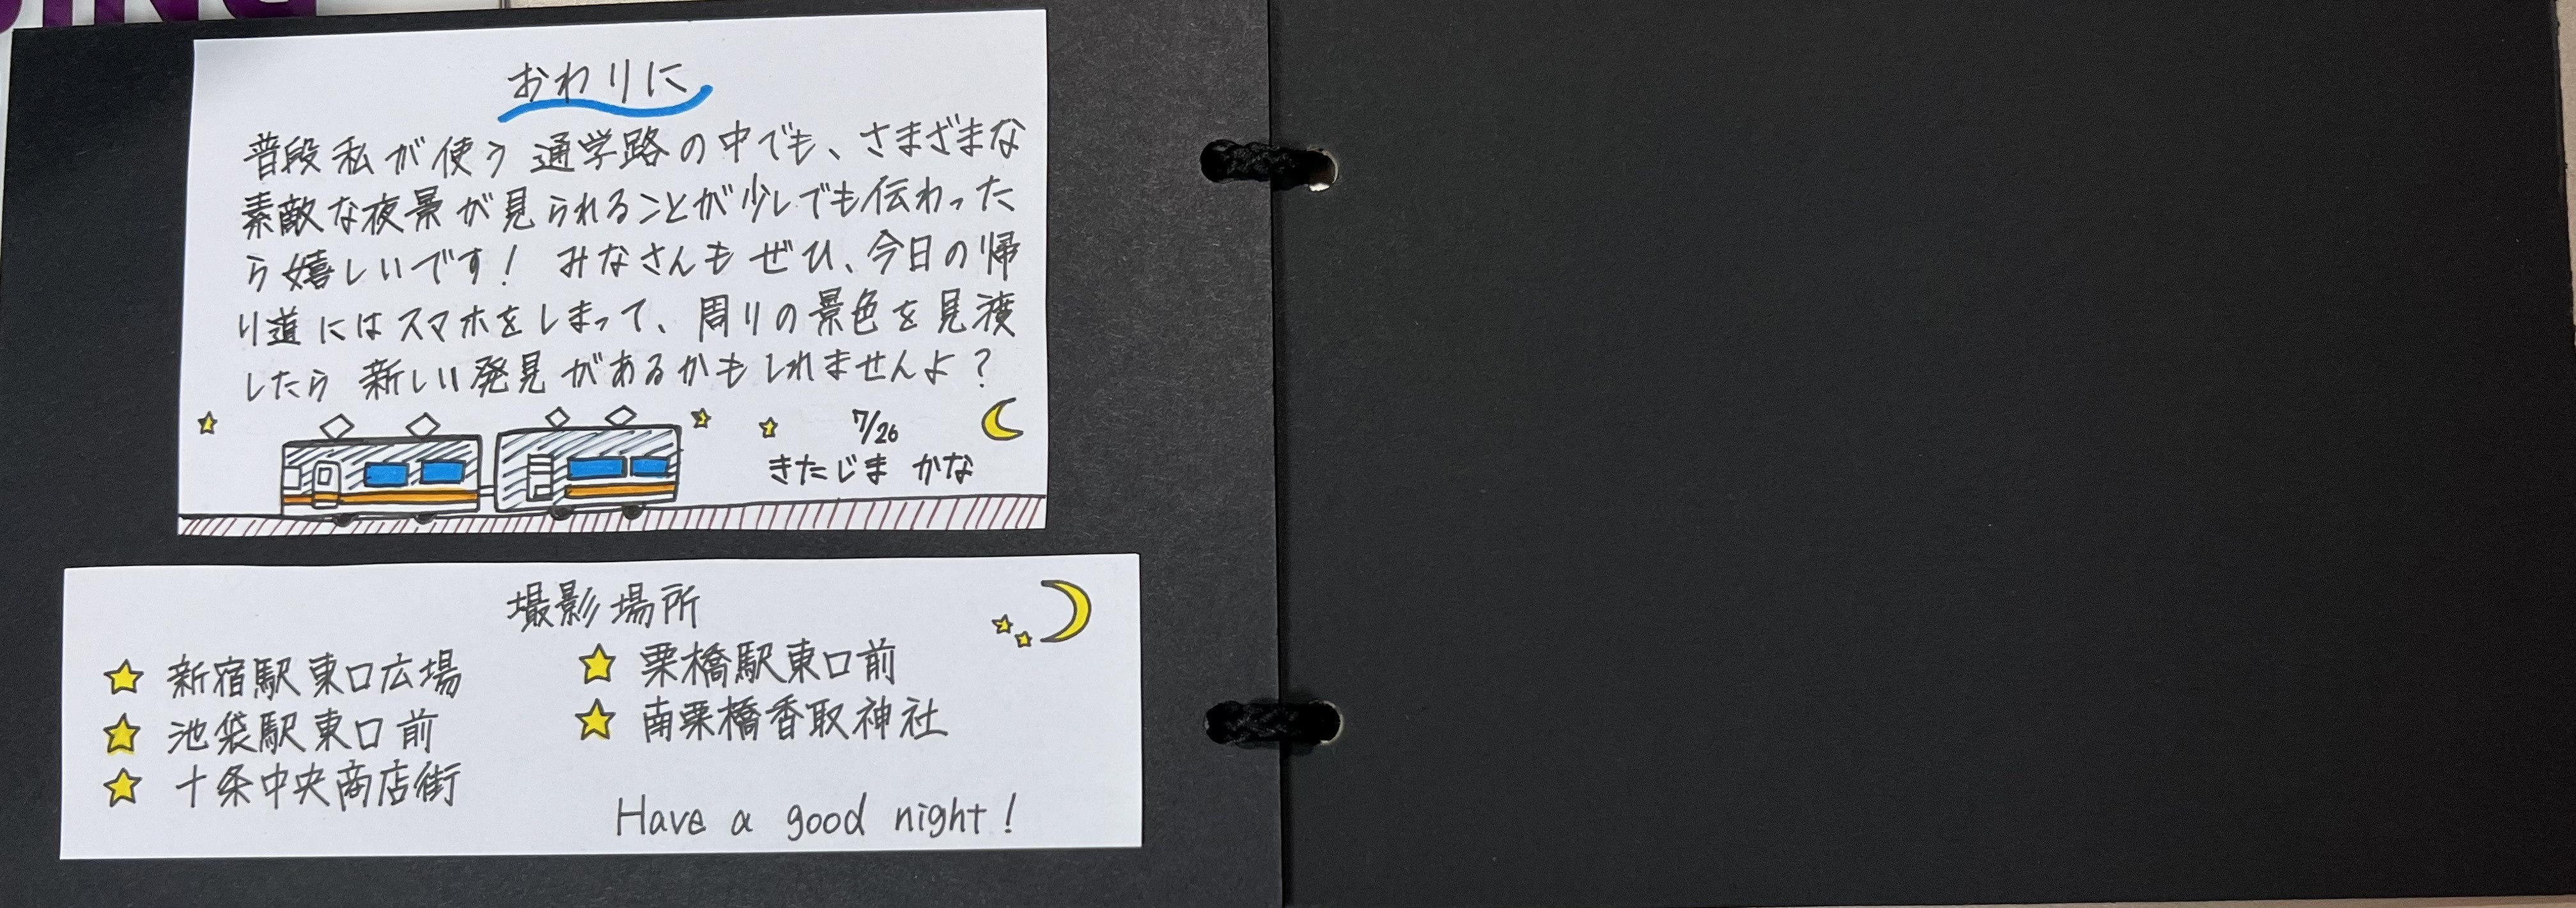 おわりに
普段私が使う通学路の中でも、さまざまな
素敵な夜景が見られることが少しでも伝わった
ら嬉しいです! みなさんもぜひ、今日の帰
り道にはスマホをしまって、周りの景色を見渡
したら新しい発見があるかもしれませんよ?
7/26
きたじま かな
撮影場所
新宿駅東口広場
池袋駅東口前
十条中央商店街
栗橋駅東口前
南栗橋香取神社
Have a good night!